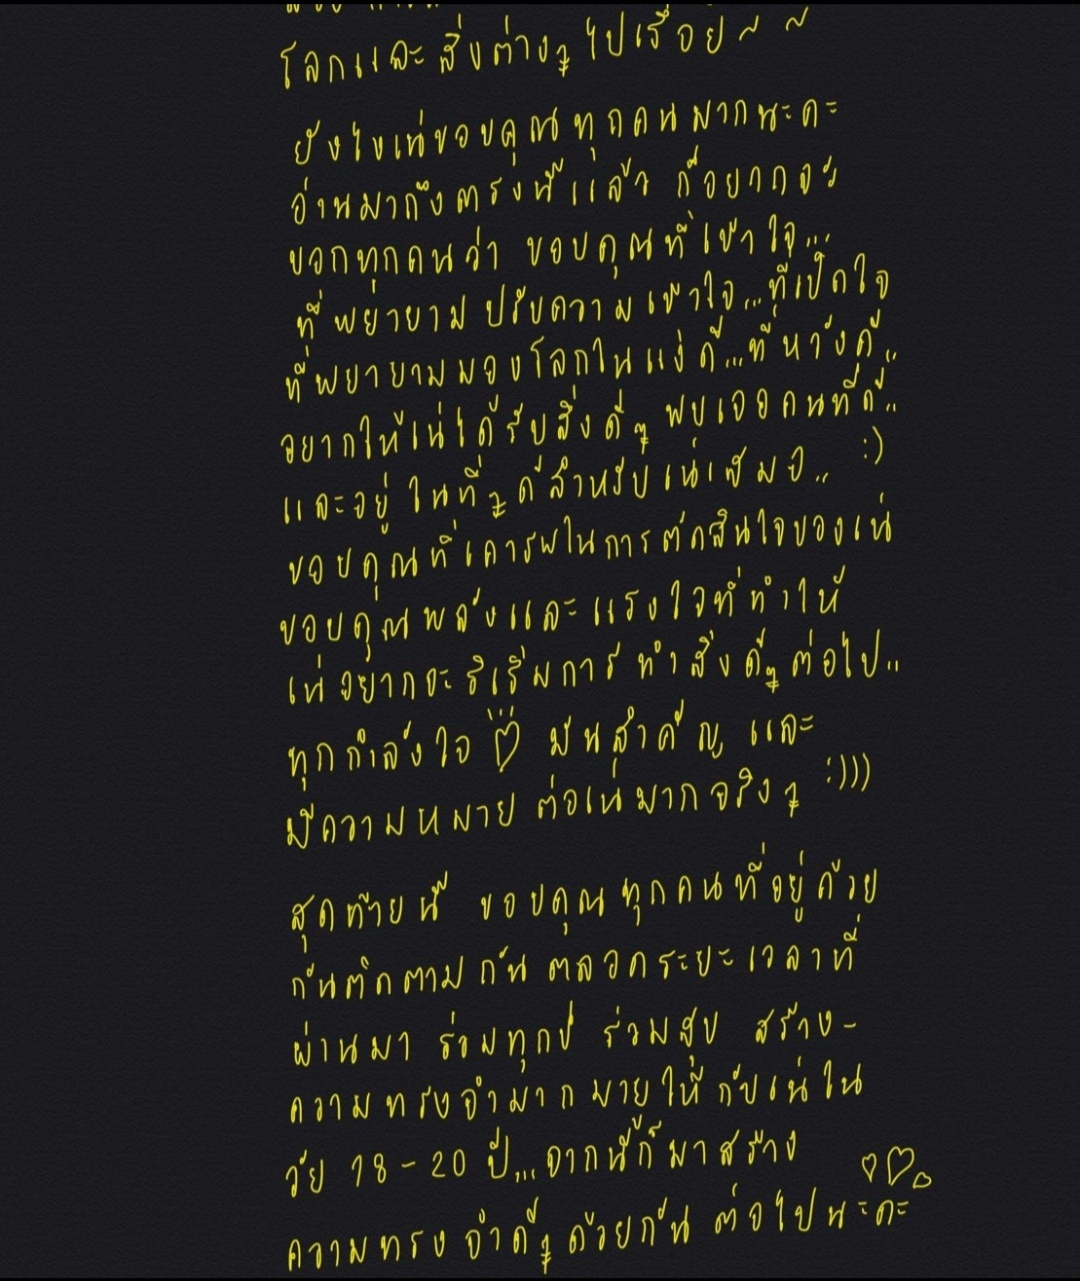 โลกและสิ่งต่างๆไปเรื่อยๆ ~ ~
ยังไงเน่ขอบคุณทุกคนมากนะคะ
อ่านมาถึงตรงนี้แล้ว ก็อยากจะ
บอกทุกคนว่า ขอบคุณที่เข้าใจ...
ที่พยายาม ปรับความเข้าใจ...ที่เปิดใจ
ที่พยายามมองโลกในแง่ดี...ที่หวังดี..
อยากให้เน่ได้รับสิ่งดีๆ พบเจอคนที่ดี..
และอยู่ในที่ๆดีสำหรับเน่เสมอ.. :)
ขอบคุณที่เคารพในการตัดสินใจของเน่
ขอบคุณพลังและแรงใจที่ทำให้
เน่อยากจะริเริ่มการทำสิ่งดีๆต่อไป..
ทุกกำลังใจ มันสำคัญ และ
มีความหมาย ต่อเน่มากจริงๆ :)))
สุดท้ายนี้ ขอบคุณทุกคนที่อยู่ด้วย
กันติดตามกันตลอดระยะเวลาที่
ผ่านมา ร่วมทุกข์ ร่วมสุข สร้าง-
ความทรงจำมากมายให้กับเน่ใน
วัย 18-20 ปี...จากนี้ก็มาสร้าง
ความทรงจำดีๆด้วยกัน ต่อไปนะคะ